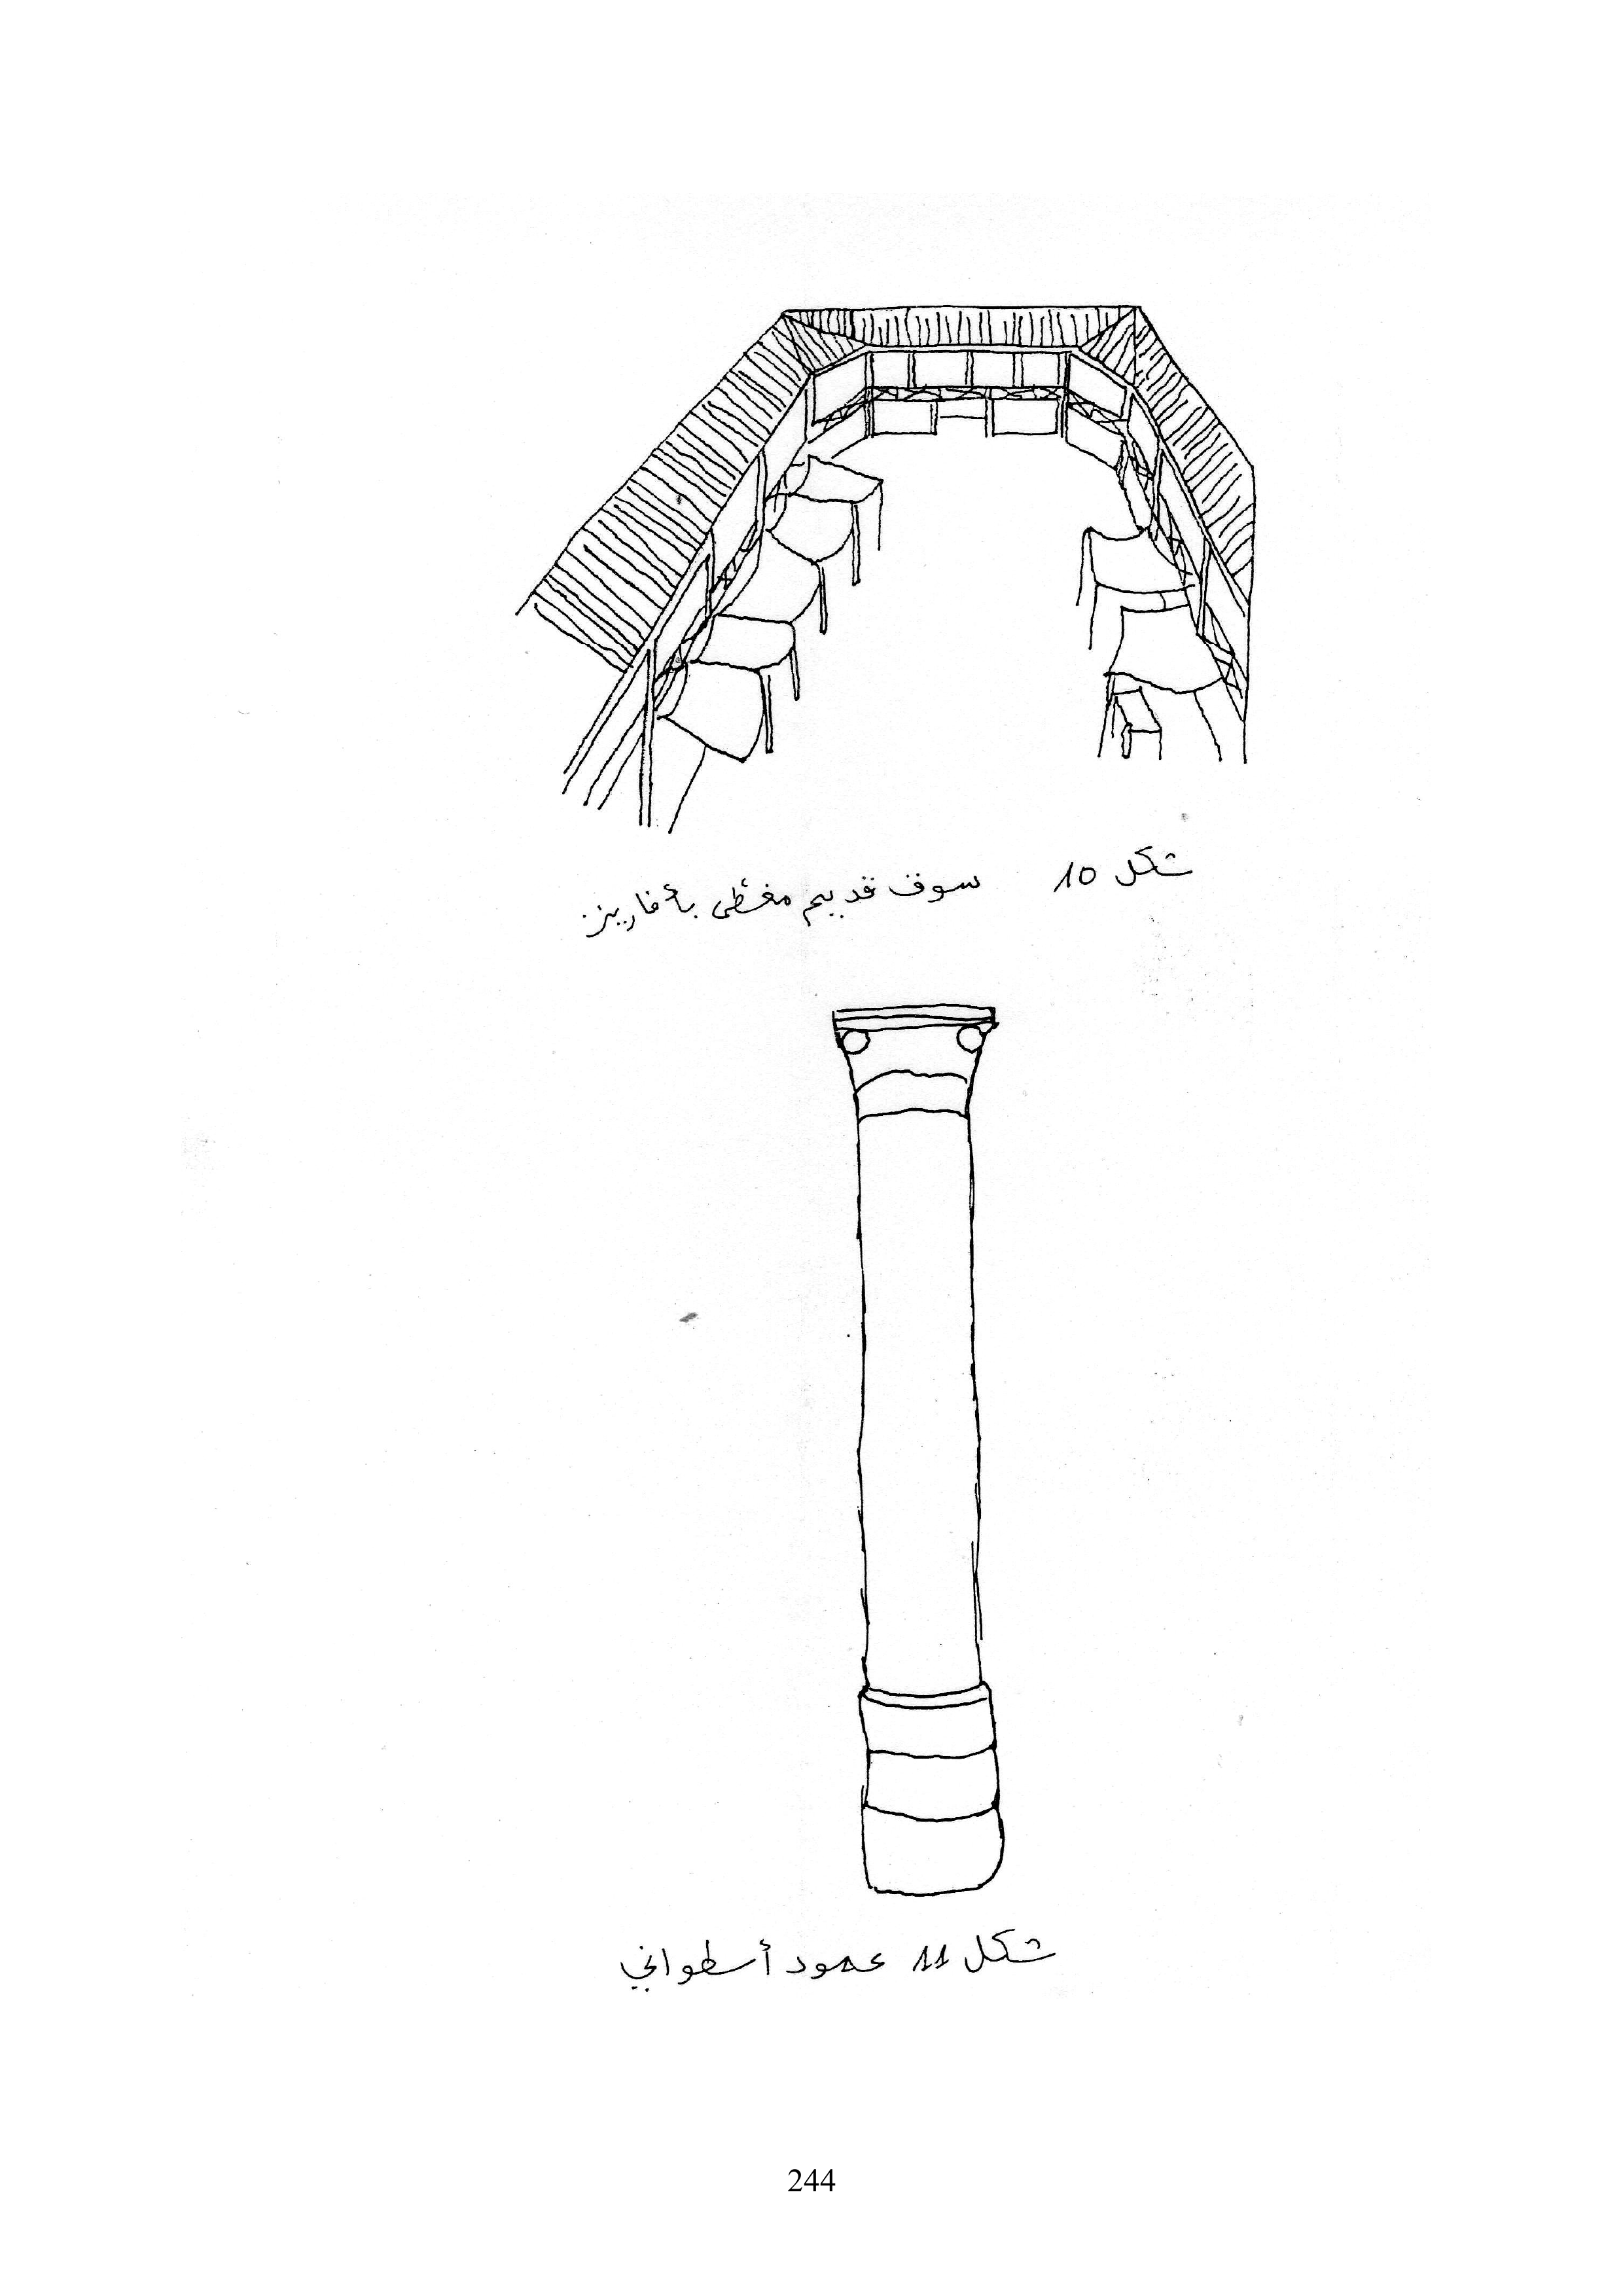 شكل 10 سوق قديم مغطى بأفاريز
شكل 11 عمود أسطواني
244